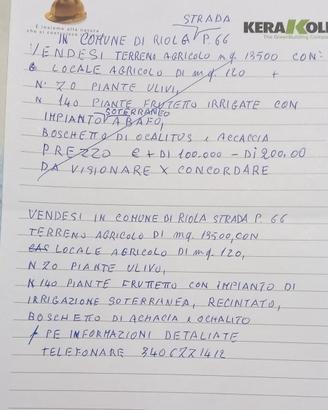 È insieme alla natura
che si costruisce
KERAKOLL
The GreenBuilding Company
STRADA
IN COMUNE DI RIOLA P. 66
VENDESI TERRENI AGRICOLO mq. 13500 CON:
LOCALE AGRICOLO DI mq. 120 +
N° 20 PIANTE ULIVI,
N 140 PIANTE FRUTTETO IRRIGATE CON
SOTERRANEO
IMPIANTO A BAFO,
BOSCHETTO DI OCALITUS e ACCACCIA
PREZZO € + DI 100.000 - DI 200,00
DA VISIONARE X CONCORDARE
VENDESI IN COMUNE DI RIOLA STRADA P. 66
TERRENO AGRICOLO DI mq. 13500, CON
LOCALE AGRICOLO DI mq. 120,
N 20 PIANTE ULIVO,
N 140 PIANTE FRUTTETO CON IMPIANTO DI
IRRIGAZIONE SOTERRANEA, RECINTATO,
BOSCHETTO DI ACHACIA e OCHALITO
PE INFORMAZIONI DETALIATE
TELEFONARE 3406271412